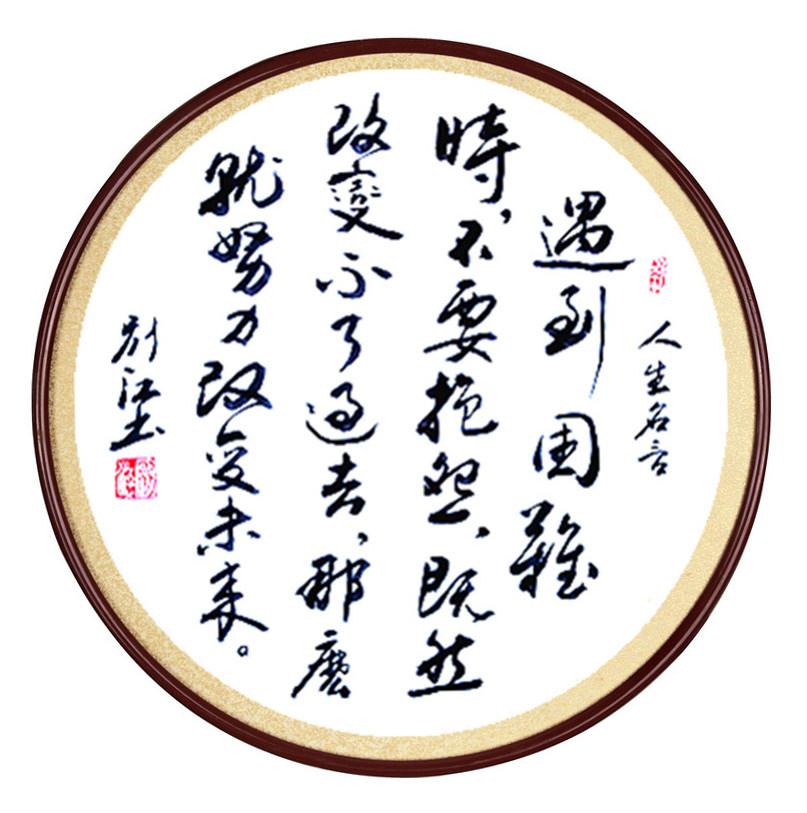 人生名言
遇到困難
時,不要抱怨、既然
改變不了過去,那麼
就努力改变未来。